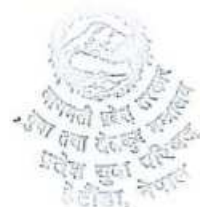 बागमती प्रदेश सरकार
युवा तथा खेलकुद मन्त्रालय
प्रदेश युवा परिषद
हेटौंडा, नेपाल